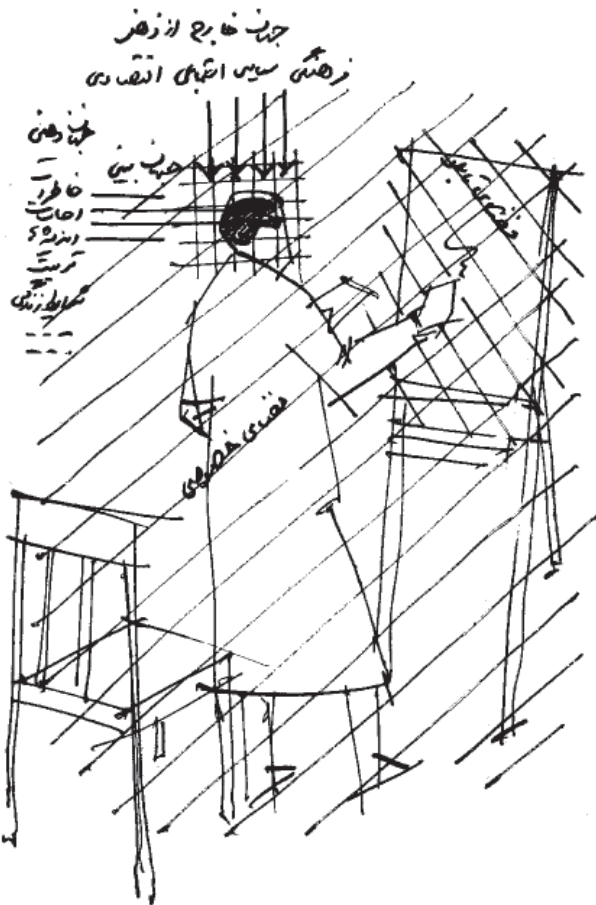 جهان خارج از ذهن
فرهنگی سیاسی اجتماعی اقتصادی
جهان ذهنی
جهان بینی
خاطرات
احساسات
اندیشه
تربیت
زندگی
فضای خصوصی
فضای